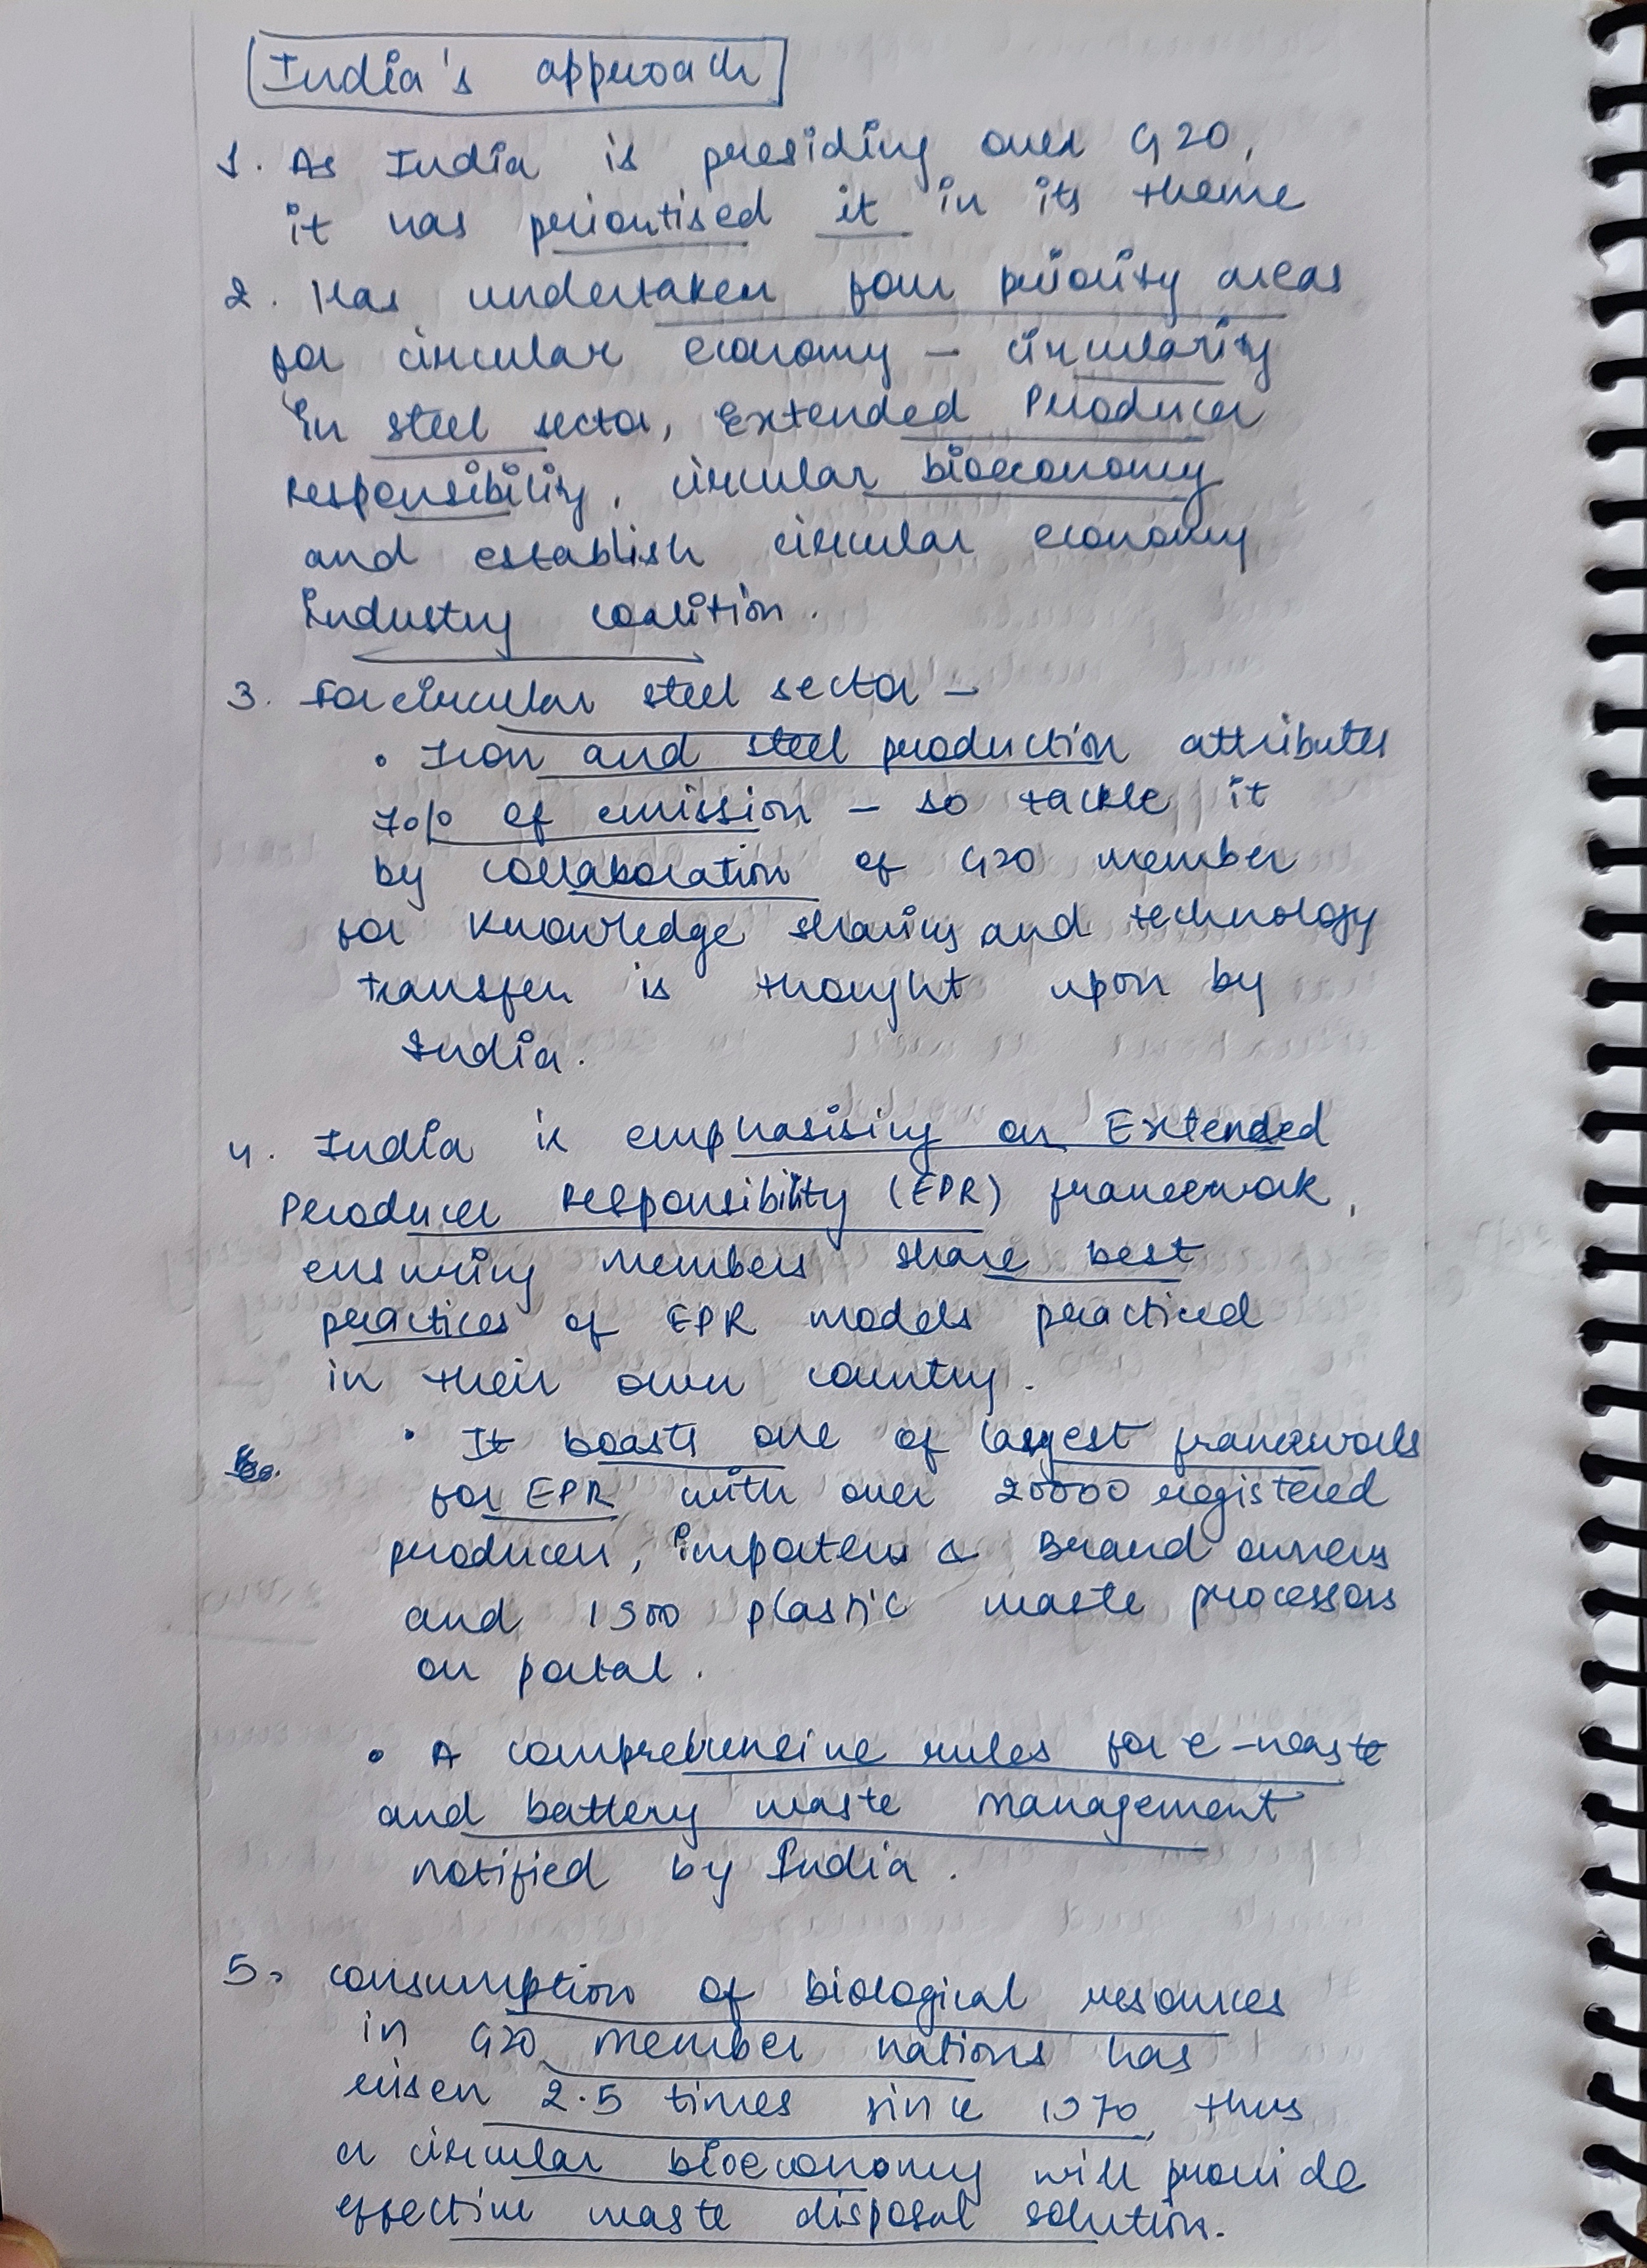 India's approach
1. As India is presiding over G20,
it has priortised it in its theme
2. Has undertaken four priority areas
for circular economy - circularity
in steel sector, Extended Producer
responsibility, circular bioeconomy
and establish circular economy
industry coalition.
3. For circular steel sector -
• Iron and steel production attributes
7% of emission - so tackle it
by collaboration of G20 member
for knowledge sharing and technology
transfer is thought upon by
India.
4. India is emphasising on Extended
Producer Responsibility (EPR) framework,
ensuring members share best
practices of EPR models practiced
in their own country.
• It boasts one of largest frameworks
for EPR with over 20000 registered
producers, importers & Brand owners
and 1900 plastic waste processors
on portal.
• A comprehensive rules for e-waste
and battery waste management
notified by India.
5. Consumption of biological resources
in G20 member nations has
risen 2.5 times since 1970, thus
a circular bioeconomy will provide
effective waste disposal solution.